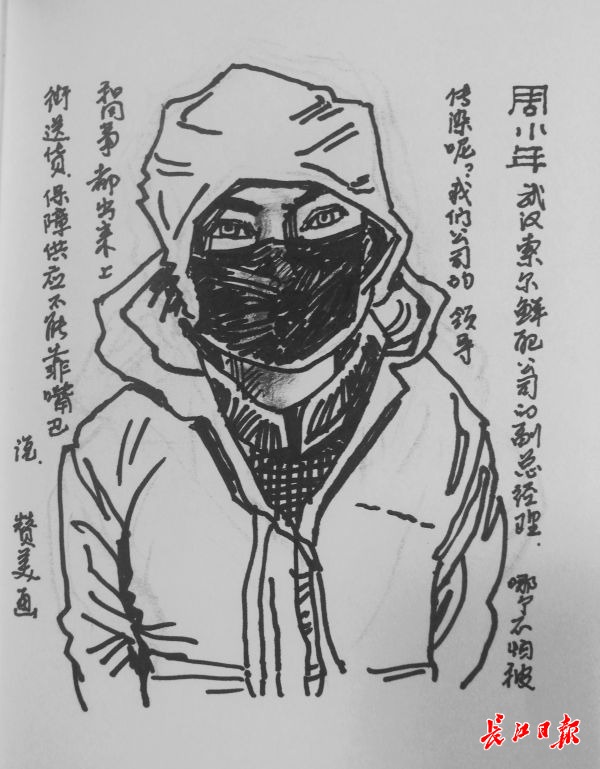 周小年 武汉索尔鲜配公司的副总经理. 哪个不怕被
传染呢？我们公司的 领导
和同事 都出来上
街送货.保障供应不能靠嘴巴
说.
赞美画
长江日报